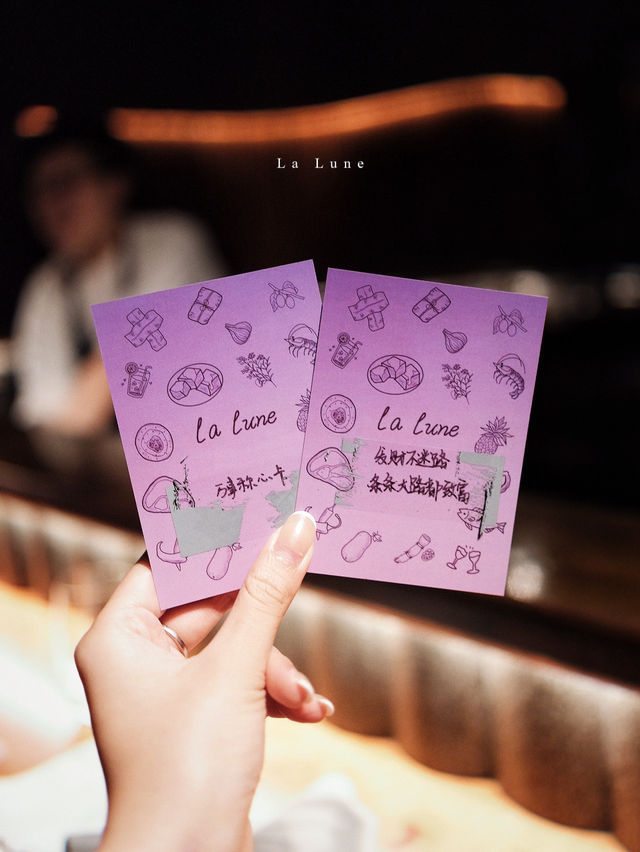 La Lune
la lune
万事称心卡
la lune
发财不迷路
条条大路都致富